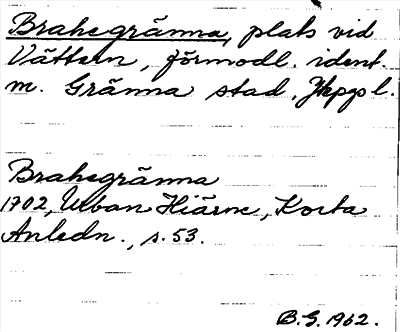 Brahegränna, plats vid
Vättern, förmodl. ident.
m. Gränna stad, Jkpgs l.
Brahegränna
1702, Urban Hiärne, Korta
Anledn., s. 53.
B.G. 1962.